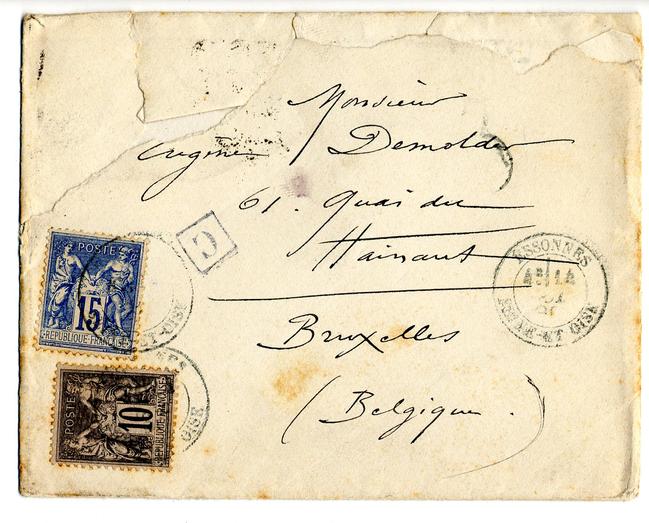 Monsieur
Eugène Demolder
61. Quai du
Hainaut
Bruxelles
(Belgique.)
POSTES
15
REPUBLIQUE FRANÇAISE
C
ET-OISE
POSTES
10
REPUBLIQUE FRANÇAISE
OISE
ESSONNES
SEINE-ET-OISE